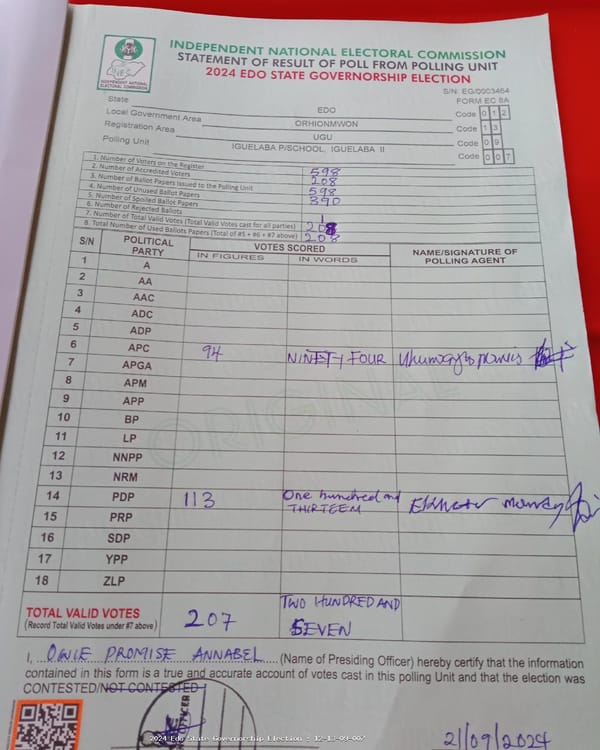 INDEPENDENT NATIONAL ELECTORAL COMMISSION
STATEMENT OF RESULT OF POLL FROM POLLING UNIT
2024 EDO STATE GOVERNORSHIP ELECTION
INDEPENDENT NATIONAL ELECTORAL COMMISSION
S/N: EG/0003464
FORM EC 8A
State EDO Code 0 1 2
Local Government Area ORHIONMWON Code 1 3
Registration Area UGU Code 0 9
Polling Unit IGUELABA P/SCHOOL, IGUELABA II Code 0 0 7
1. Number of Voters on the Register 598
2. Number of Accredited Voters 208
3. Number of Ballot Papers Issued to the Polling Unit 598
4. Number of Unused Ballot Papers 390
5. Number of Spoiled Ballot Papers
6. Number of Rejected Ballots 1
7. Number of Total Valid Votes (Total Valid Votes cast for all parties)
8. Total Number of Used Ballots Papers (Total of #5 + #6 + #7 above) 208
S/N POLITICAL PARTY VOTES SCORED NAME/SIGNATURE OF POLLING AGENT
IN FIGURES IN WORDS
1 A
2 AA
3 AAC
4 ADC
5 ADP
6 APC 94 NINETY FOUR
7 APGA
8 APM
9 APP
10 BP
11 LP
12 NNPP
13 NRM
14 PDP 113 One hundred and THIRTEEN
15 PRP
16 SDP
17 YPP
18 ZLP
ORIGINAL
TOTAL VALID VOTES 207 TWO HUNDRED AND SEVEN
(Record Total Valid Votes under #7 above)
I, OWIE PROMISE ANNABEL (Name of Presiding Officer) hereby certify that the information
contained in this form is a true and accurate account of votes cast in this polling Unit and that the election was
CONTESTED/NOT CONTESTED
OFFICER
2024 Edo State Governorship Election - 12-13-09-007
21/09/2024